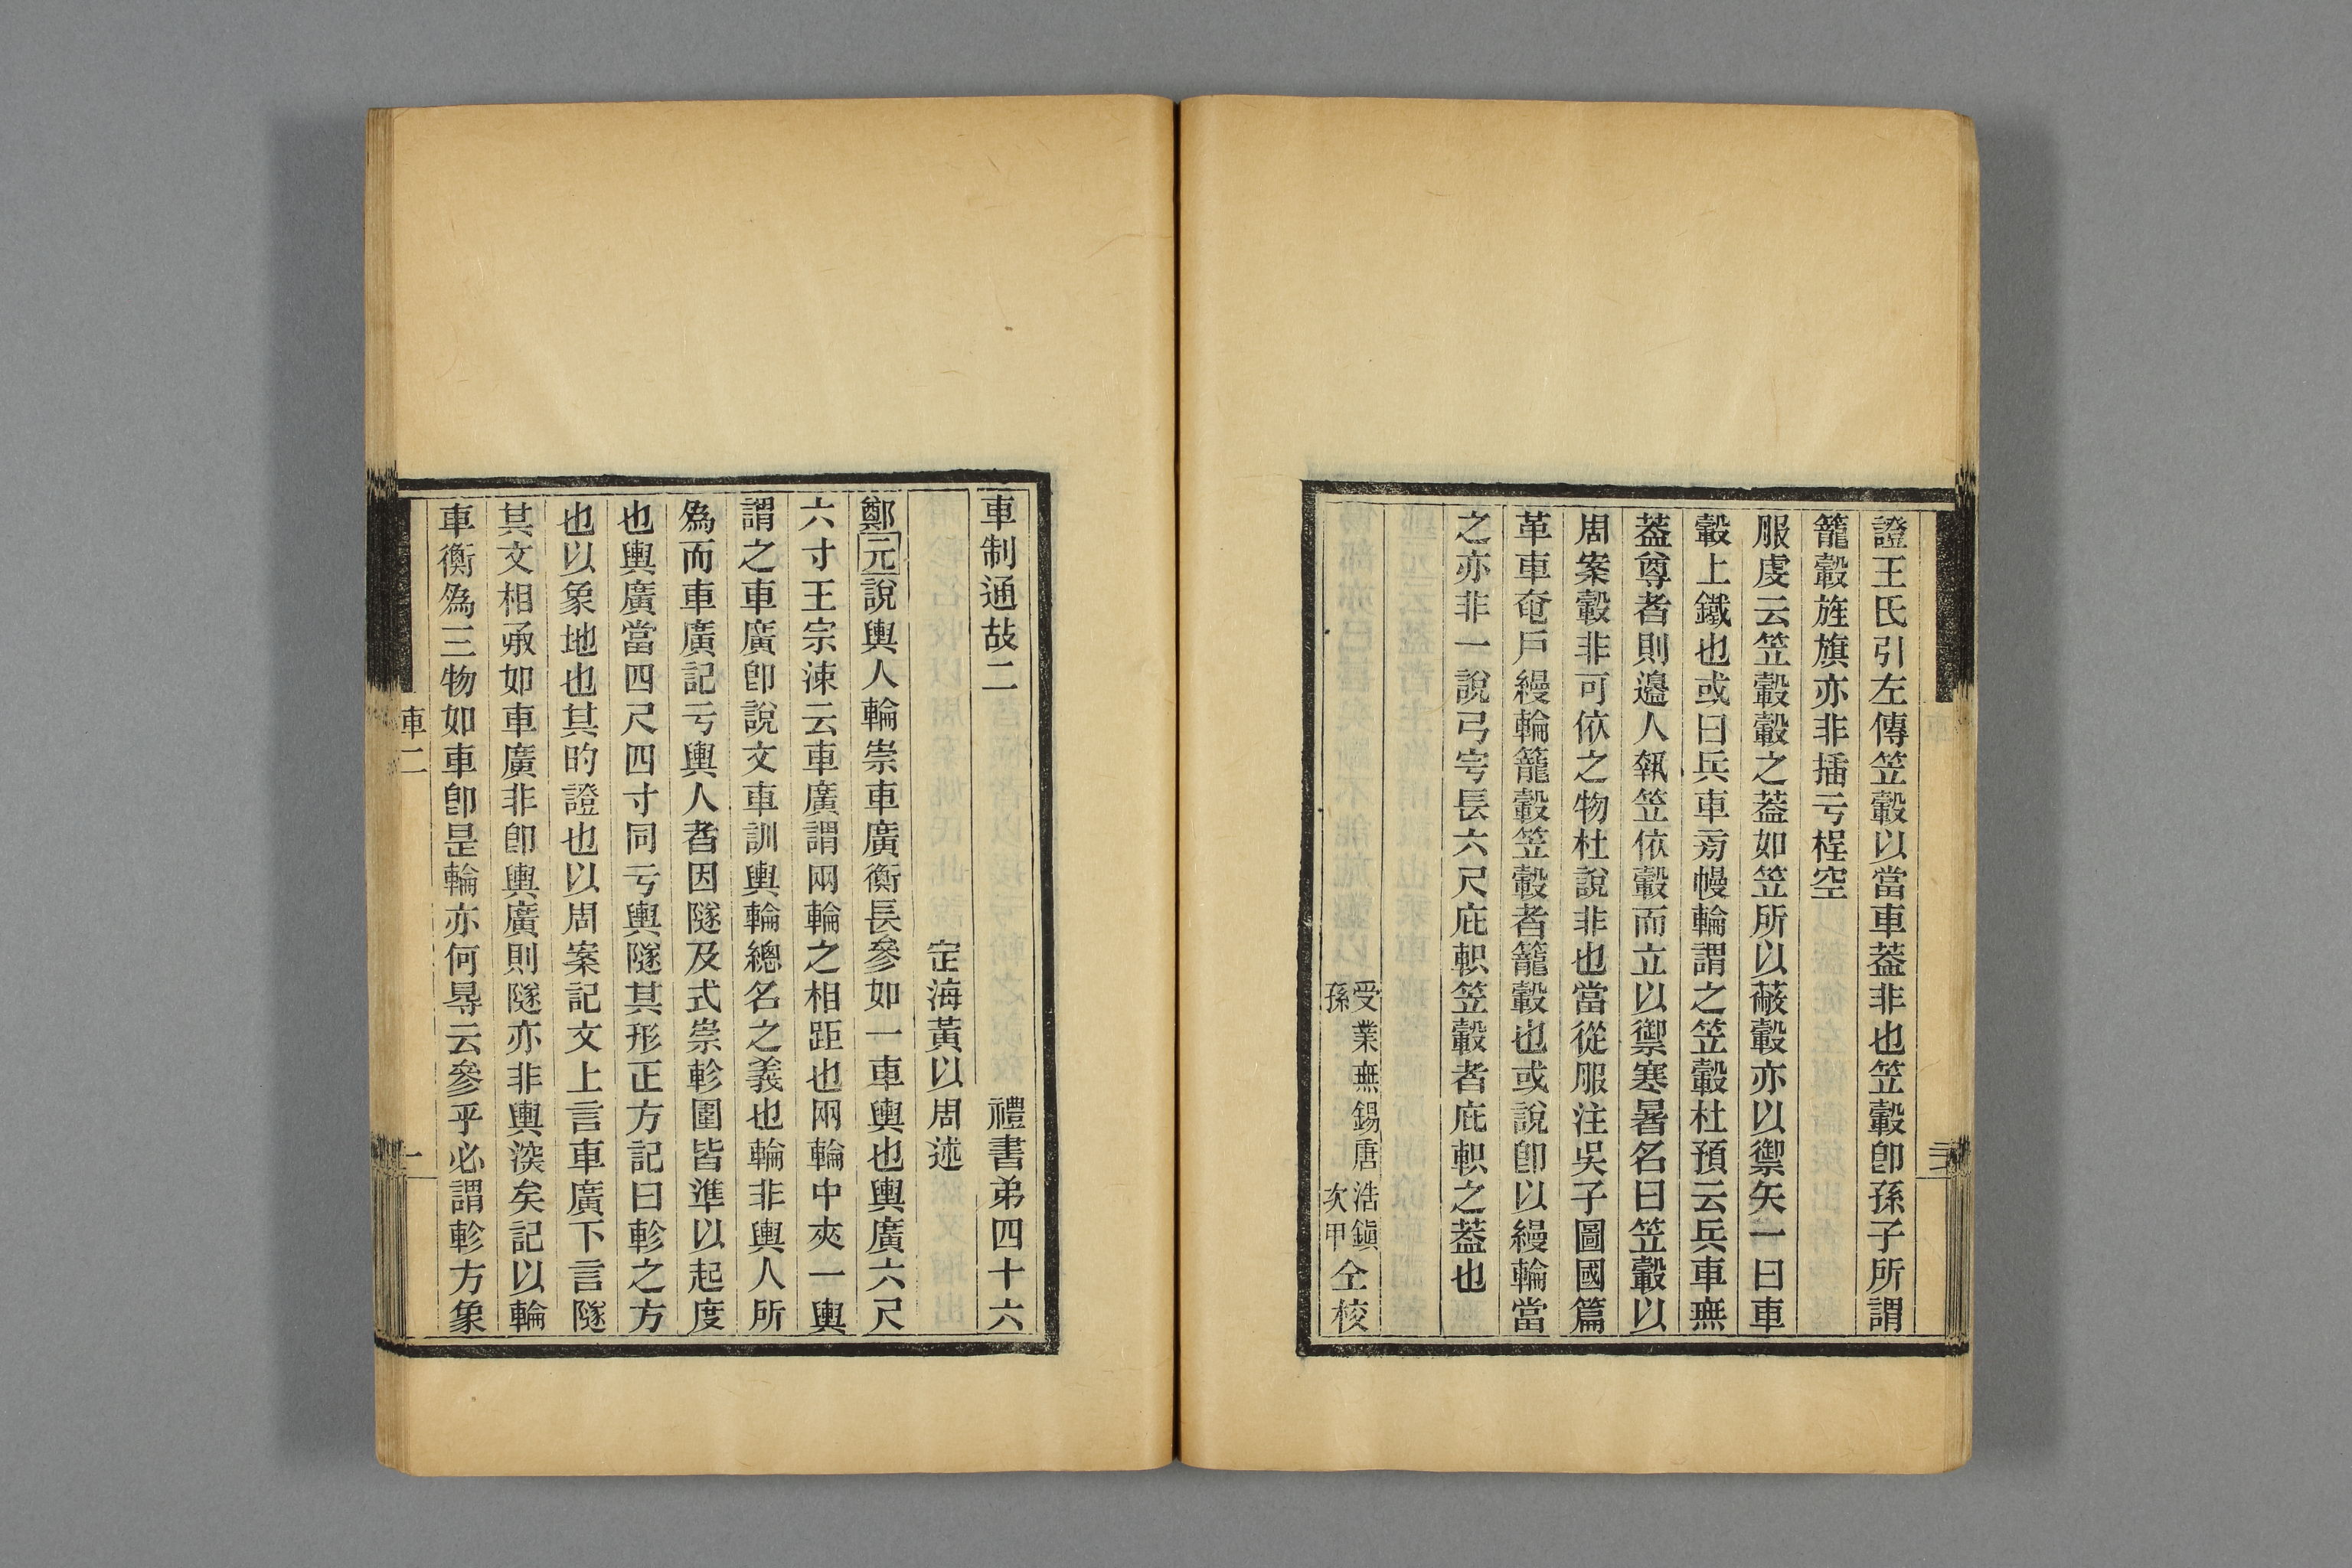 證王氏引左傳笠轂以當車葢非也笠轂卽孫子所謂
籠轂旌旗亦非插亏桯空
服虔云笠轂轂之葢如笠所以蔽轂亦以禦矢一曰車
轂上鐵也或曰兵車㫄幔輪謂之笠轂杜預云兵車無
葢尊者則邊人執笠依轂而立以禦寒暑名曰笠轂以
周案轂非可依之物杜說非也當從服注吳子圖國篇
革車奄戶縵輪籠轂笠轂者籠轂也或說卽以縵輪當
之亦非一說弓穹長六尺庇軹笠轂者庇軹之葢也
受業無錫唐浩鎭
孫次甲
仝校
車制通故二
禮書弟四十六
定海黃以周述
鄭元說輿人輪崇車廣衡長參如一車輿也輿廣六尺
六寸王宗涑云車廣謂兩輪之相距也兩輪中夾一輿
謂之車廣卽說文車訓輿輪總名之義也輪非輿人所
爲而車廣記亏輿人者因隧及式崇軫圍皆準以起度
也輿廣當四尺四寸同亏輿隧其形正方記曰軫之方
也以象地也其旳證也以周案記文上言車廣下言隧
其文相承如車廣非卽輿廣則隧亦非輿深矣記以輪
車衡爲三物如車卽是輪亦何㝵云參乎必謂軫方象
車二
一